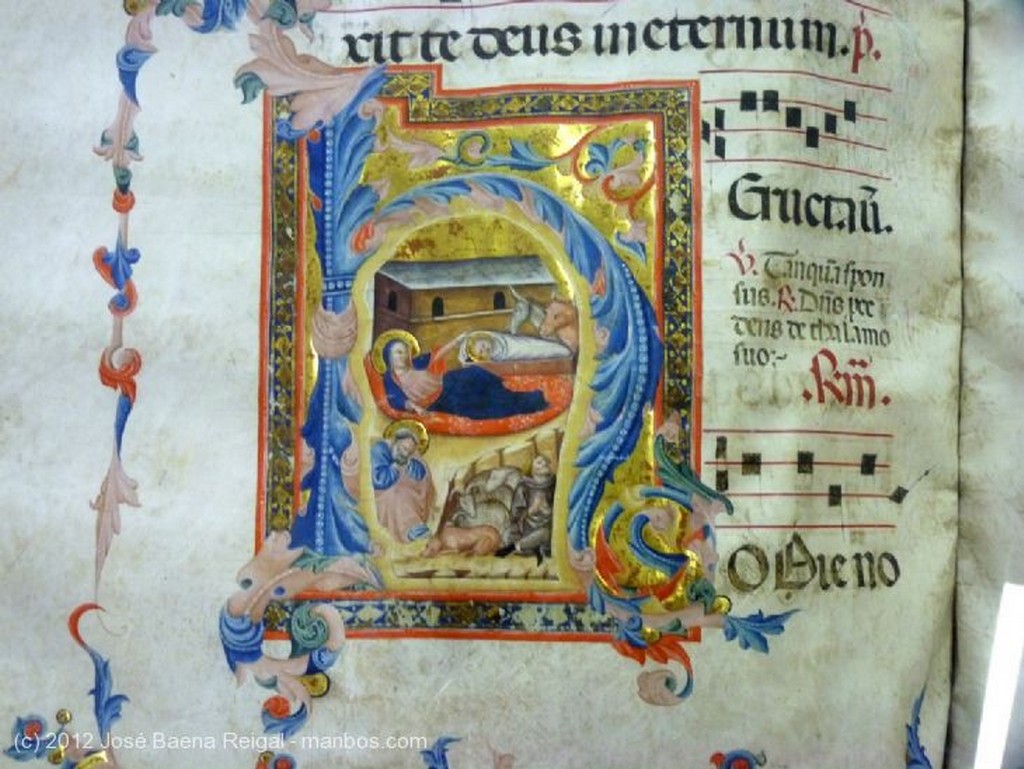 xit te deus in eternum. p.
Eructaū.
V. Tanquā spon
sus. R. Dñs pce
dens de thalamo
suo:~
.Rm̃.
H
ODie no
(c) 2012 José Baena Reigal - manbos.com